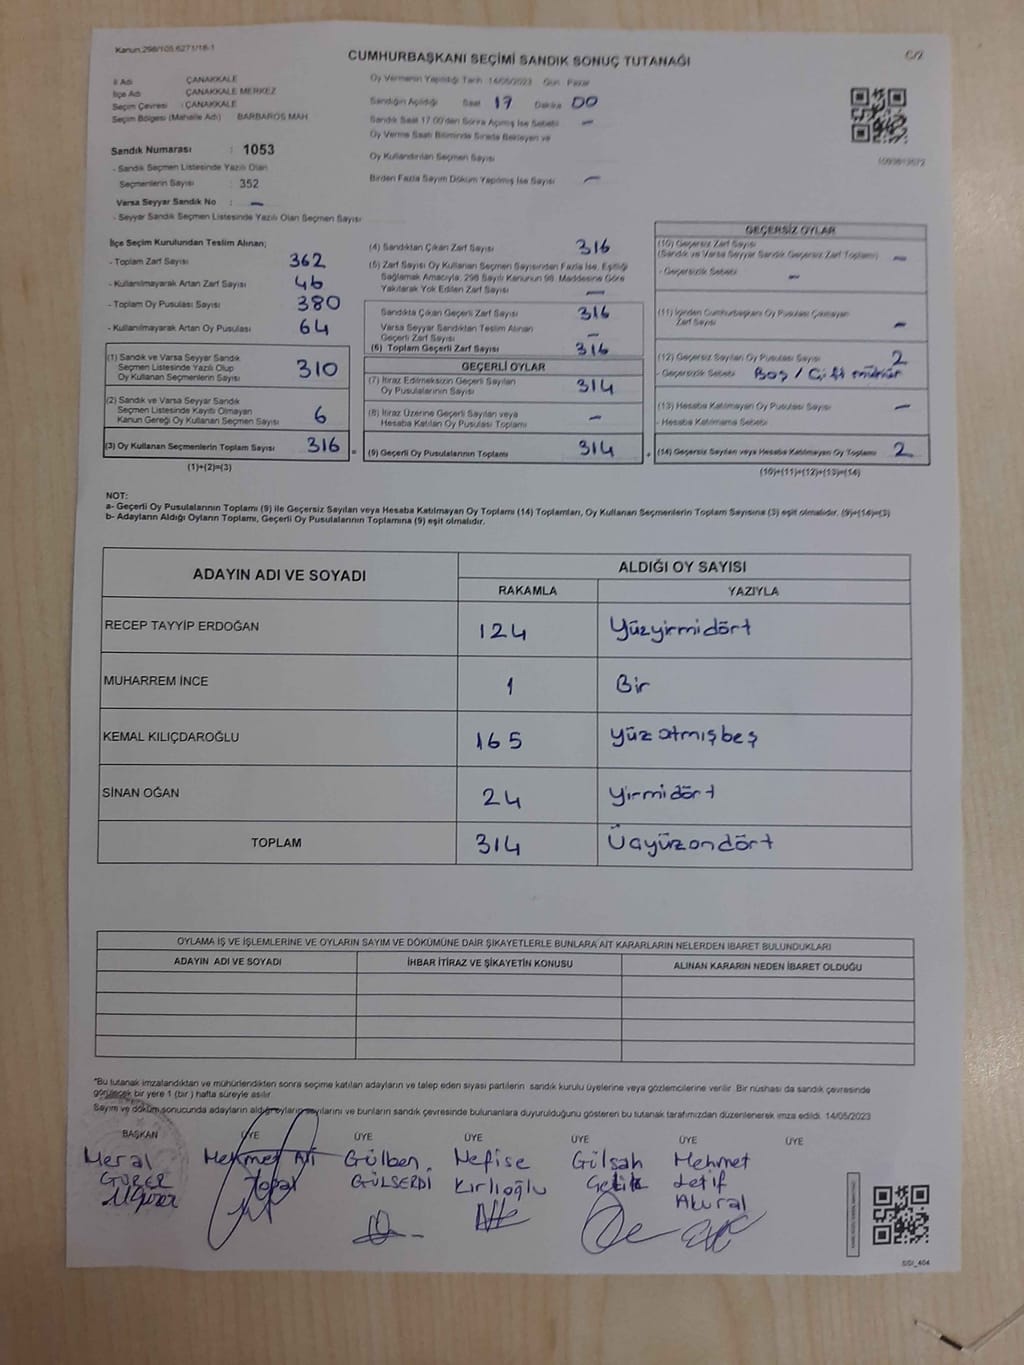 Kanun:298/105,6271/18-1
CUMHURBAŞKANI SEÇİMİ SANDIK SONUÇ TUTANAĞI
C/2
İl Adı ÇANAKKALE
İlçe Adı ÇANAKKALE MERKEZ
Seçim Çevresi : ÇANAKKALE
Seçim Bölgesi (Mahalle Adı) BARBAROS MAH
Oy Vermenin Yapıldığı Tarih 14/05/2023 Gün Pazar
Sandığın Açıldığı Saat 17 Dakika 00
Sandık Saat 17.00'den Sonra Açılmış İse Sebebi —
Oy Verme Saati Bitiminde Sırada Bekleyen ve
Oy Kullandırılan Seçmen Sayısı
Birden Fazla Sayım Döküm Yapılmış İse Sayısı —
Sandık Numarası : 1053
- Sandık Seçmen Listesinde Yazılı Olan
Seçmenlerin Sayısı : 352
Varsa Seyyar Sandık No : —
- Seyyar Sandık Seçmen Listesinde Yazılı Olan Seçmen Sayısı
İlçe Seçim Kurulundan Teslim Alınan;
- Toplam Zarf Sayısı 362
- Kullanılmayarak Artan Zarf Sayısı 46
- Toplam Oy Pusulası Sayısı 380
- Kullanılmayarak Artan Oy Pusulası 64
(1) Sandık ve Varsa Seyyar Sandık
Seçmen Listesinde Yazılı Olup
Oy Kullanan Seçmenlerin Sayısı 310
(2) Sandık ve Varsa Seyyar Sandık
Seçmen Listesinde Kayıtlı Olmayan
Kanun Gereği Oy Kullanan Seçmen Sayısı 6
(3) Oy Kullanan Seçmenlerin Toplam Sayısı 316
(1)+(2)=(3)
(4) Sandıktan Çıkan Zarf Sayısı 316
(5) Zarf Sayısı Oy Kullanan Seçmen Sayısından Fazla İse, Eşitliği
Sağlamak Amacıyla, 298 Sayılı Kanunun 98. Maddesine Göre
Yakılarak Yok Edilen Zarf Sayısı —
Sandıkta Çıkan Geçerli Zarf Sayısı 316
Varsa Seyyar Sandıktan Teslim Alınan
Geçerli Zarf Sayısı —
(6) Toplam Geçerli Zarf Sayısı 316
GEÇERLİ OYLAR
(7) İtiraz Edilmeksizin Geçerli Sayılan
Oy Pusulalarının Sayısı 314
(8) İtiraz Üzerine Geçerli Sayılan veya
Hesaba Katılan Oy Pusulası Toplamı —
(9) Geçerli Oy Pusulalarının Toplamı 314
GEÇERSİZ OYLAR
(10) Geçersiz Zarf Sayısı
(Sandık ve Varsa Seyyar Sandık Geçersiz Zarf Toplamı) —
- Geçersizlik Sebebi —
(11) İçinden Cumhurbaşkanı Oy Pusulası Çıkmayan
Zarf Sayısı —
(12) Geçersiz Sayılan Oy Pusulası Sayısı 2
- Geçersizlik Sebebi Boş / Çift mühür
(13) Hesaba Katılmayan Oy Pusulası Sayısı —
- Hesaba Katılmama Sebebi
(14) Geçersiz Sayılan veya Hesaba Katılmayan Oy Toplamı 2
(10)+(11)+(12)+(13)=(14)
NOT:
a- Geçerli Oy Pusulalarının Toplamı (9) ile Geçersiz Sayılan veya Hesaba Katılmayan Oy Toplamı (14) Toplamları, Oy Kullanan Seçmenlerin Toplam Sayısına (3) eşit olmalıdır. (9)+(14)=(3)
b- Adayların Aldığı Oyların Toplamı, Geçerli Oy Pusulalarının Toplamına (9) eşit olmalıdır.
ADAYIN ADI VE SOYADI ALDIĞI OY SAYISI
RAKAMLA YAZIYLA
RECEP TAYYİP ERDOĞAN 124 Yüzyirmidört
MUHARREM İNCE 1 Bir
KEMAL KILIÇDAROĞLU 165 yüz atmışbeş
SİNAN OĞAN 24 Yirmidört
TOPLAM 314 Üçyüzondört
OYLAMA İŞ VE İŞLEMLERİNE VE OYLARIN SAYIM VE DÖKÜMÜNE DAİR ŞİKAYETLERLE BUNLARA AİT KARARLARIN NELERDEN İBARET BULUNDUKLARI
ADAYIN ADI VE SOYADI İHBAR İTİRAZ VE ŞİKAYETİN KONUSU ALINAN KARARIN NEDEN İBARET OLDUĞU
"Bu tutanak imzalandıktan ve mühürlendikten sonra seçime katılan adayların ve talep eden siyasi partilerin sandık kurulu üyelerine veya gözlemcilerine verilir. Bir nüshası da sandık çevresinde
görülecek bir yere 1 (bir ) hafta süreyle asılır.
Sayım ve döküm sonucunda adayların aldığı oyların sayılarını ve bunların sandık çevresinde bulunanlara duyurulduğunu gösteren bu tutanak tarafımızdan düzenlenerek imza edildi. 14/05/2023
BAŞKAN ÜYE ÜYE ÜYE ÜYE ÜYE ÜYE
Meral Mehmet Ali Gülben Nefise Gülşah Mehmet
GÜRER Topal GÜLSERDİ Kırlıoğlu Çelik Latif
Akural
SSI_404